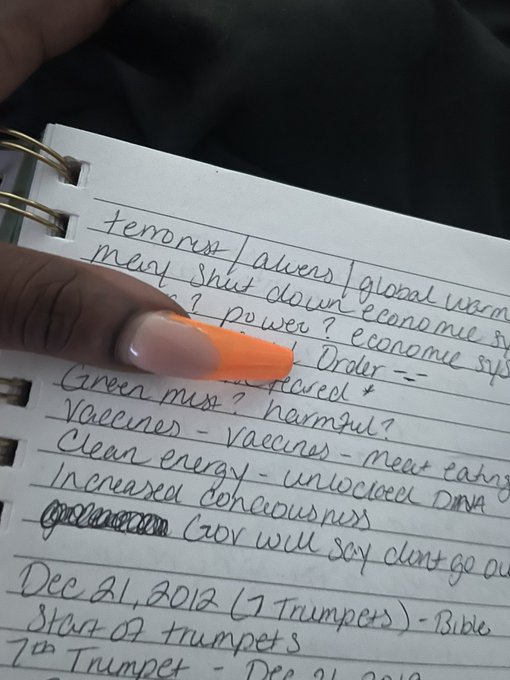 terrorist / aliens / global warm
may shut down economic sy
? power? economic sys
Order --
feared *
Green mist? harmful?
Vaccines - vaccines - meat eating
Clean energy - unlocked DNA
Increased conciousness
Gov will say dont go ou
Dec 21, 2012 (7 Trumpets) - Bible
Start of trumpets
7th Trumpet - Dec 21